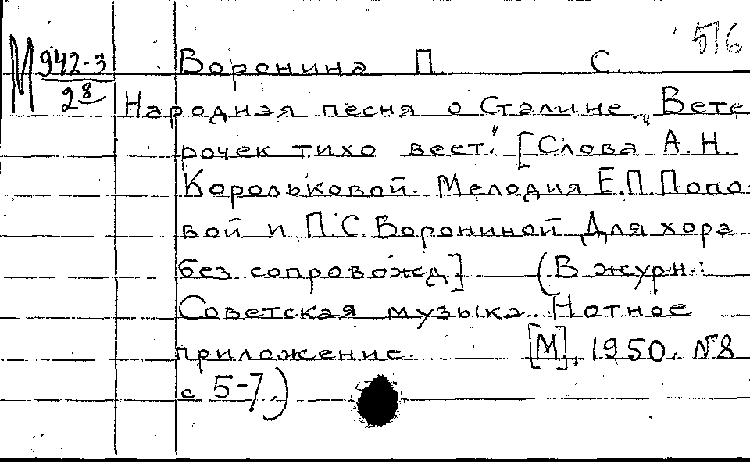 516
М 942-3
28
Воронина П. С.
Народная песня о Сталине „Вете
рочек тихо веет." [Слова А. Н.
Корольковой. Мелодия Е.П. Попо-
вой и П.С. Ворониной Для хора
без сопровожд] (В журн.:
Советская музыка. Нотное
приложение. [М], 1950, №8
с 5-7.)